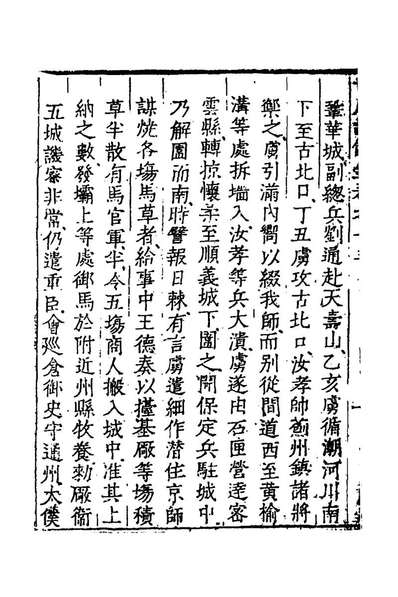 鞏華城副總兵劉通赴天壽山乙亥虜循潮河川南
下至古北口丁丑虜攻古北口汝孝帥薊州鎮諸將
禦之虜引滿內嚮以綴我師而別從間道西至黃榆
溝等處拆墻入汝孝等兵大潰虜遂由石匣營達密
雲縣轉掠懷柔至順義城下圍之聞保定兵駐城中
乃解圍而南時警報日棘有言虜遣細作潛住京師
謀燒各塲馬草者給事中王德奏以擡基厰等塲積
草半散有馬官軍半令五塲商人搬入城中准其上
納之數發壩上等處御馬於附近州縣牧養勑厰衞
五城譏察非常仍遣重臣會廵倉御史守通州太僕